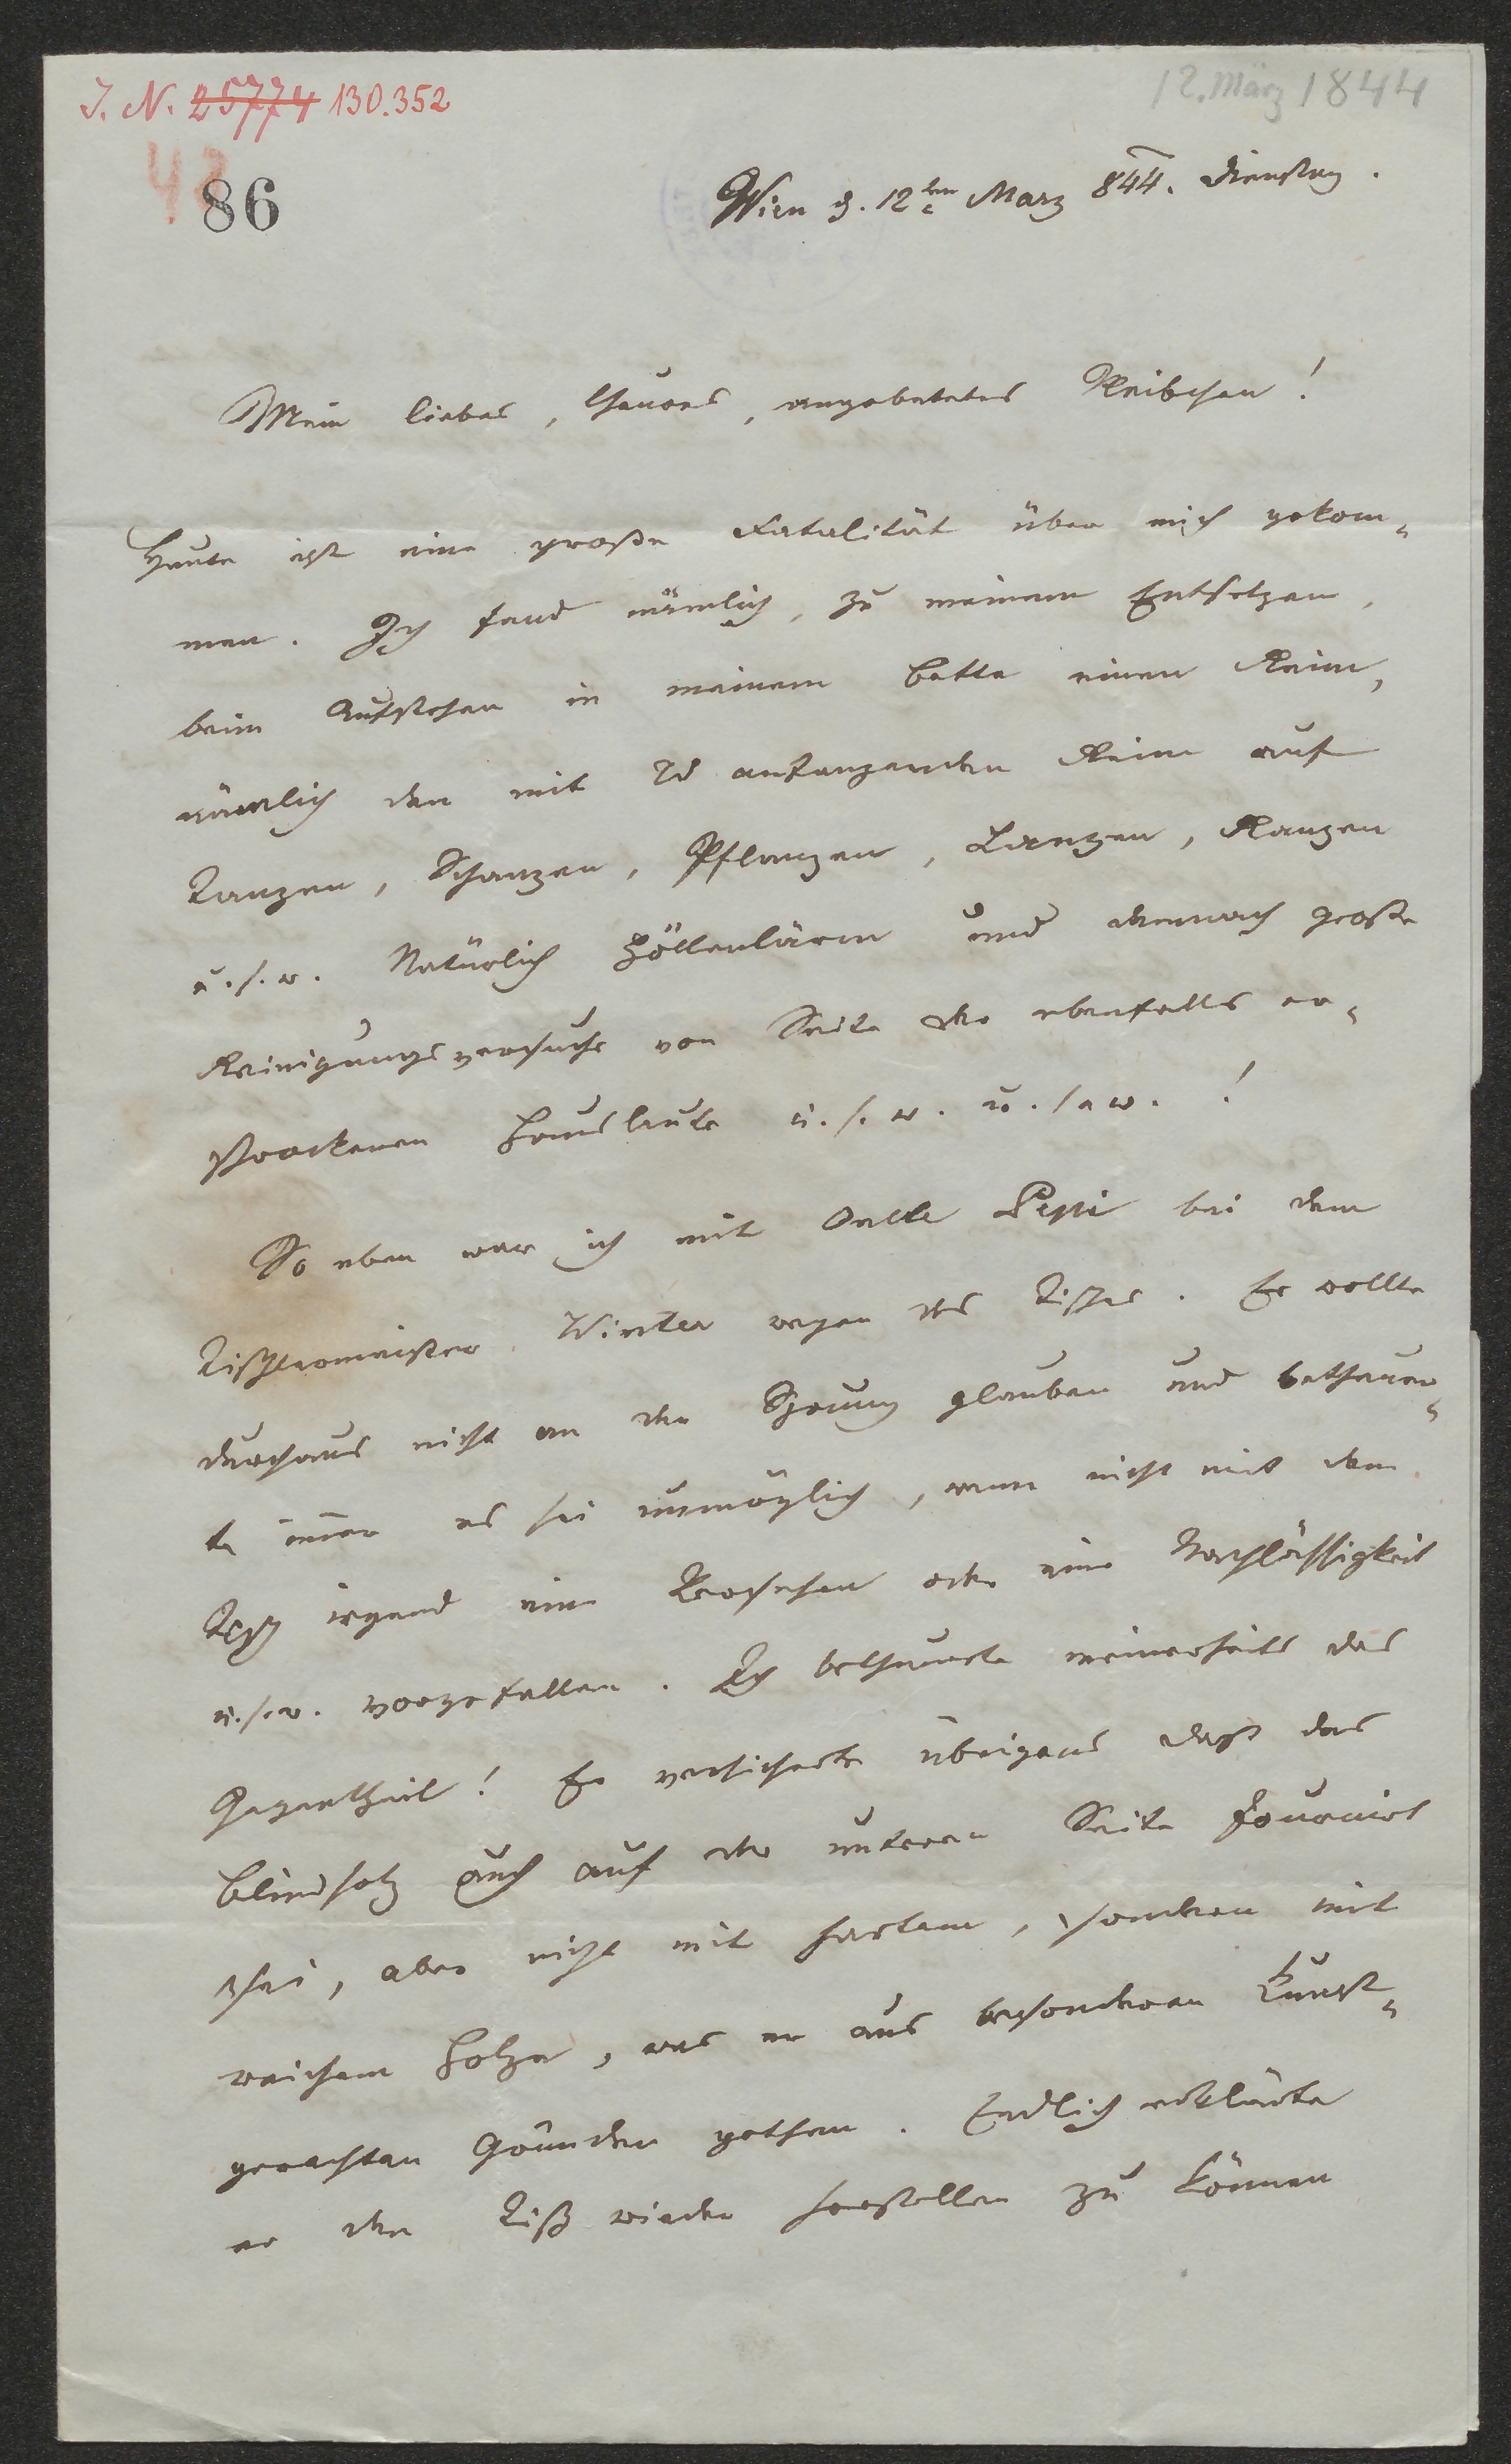 J. N. 25774 130.352
12. März 1844
43
86
Wien d. 12ten März 844. Dienstag.
Mein liebes, theures, angebetetes Weibchen!
Heute ist eine große Fatalität über mich gekom-
men. Ich fand nämlich, zu meinem Entsetzen,
beim Aufstehen in meinem Bette einen Reim,
nämlich den mit W anfangenden Reim auf
Tanzen, Schanzen, Pflanzen, Lanzen, Ranzen
u.s.w. Natürlich Höllenlärm und demnach große
Reinigungsversuche von Seite der ebenfalls er-
schrockenen Hausleute u.s.w. u.s.w.!
So eben war ich mit Pepi bei dem
Tischlermeister Winter wegen des Tisches. Er wollte
durchaus nicht an den Sprung glauben und betheuer-
te immer es sei unmöglich, wenn nicht mit dem
Tisch irgend ein Versehen oder eine Nachlässigkeit
u.s.w. vorgefallen. Ich betheuerte meinerseits das
Gegentheil! Er versicherte übrigens daß das
Blindholz auch auf der unteren Seite fournirt
sei, aber nicht mit hartem, sondern mit
weichem Holze, was er aus besonderen Kunst-
gerechten Gründen gethan. Endlich erklärte
er den Tisch wieder herstellen zu können